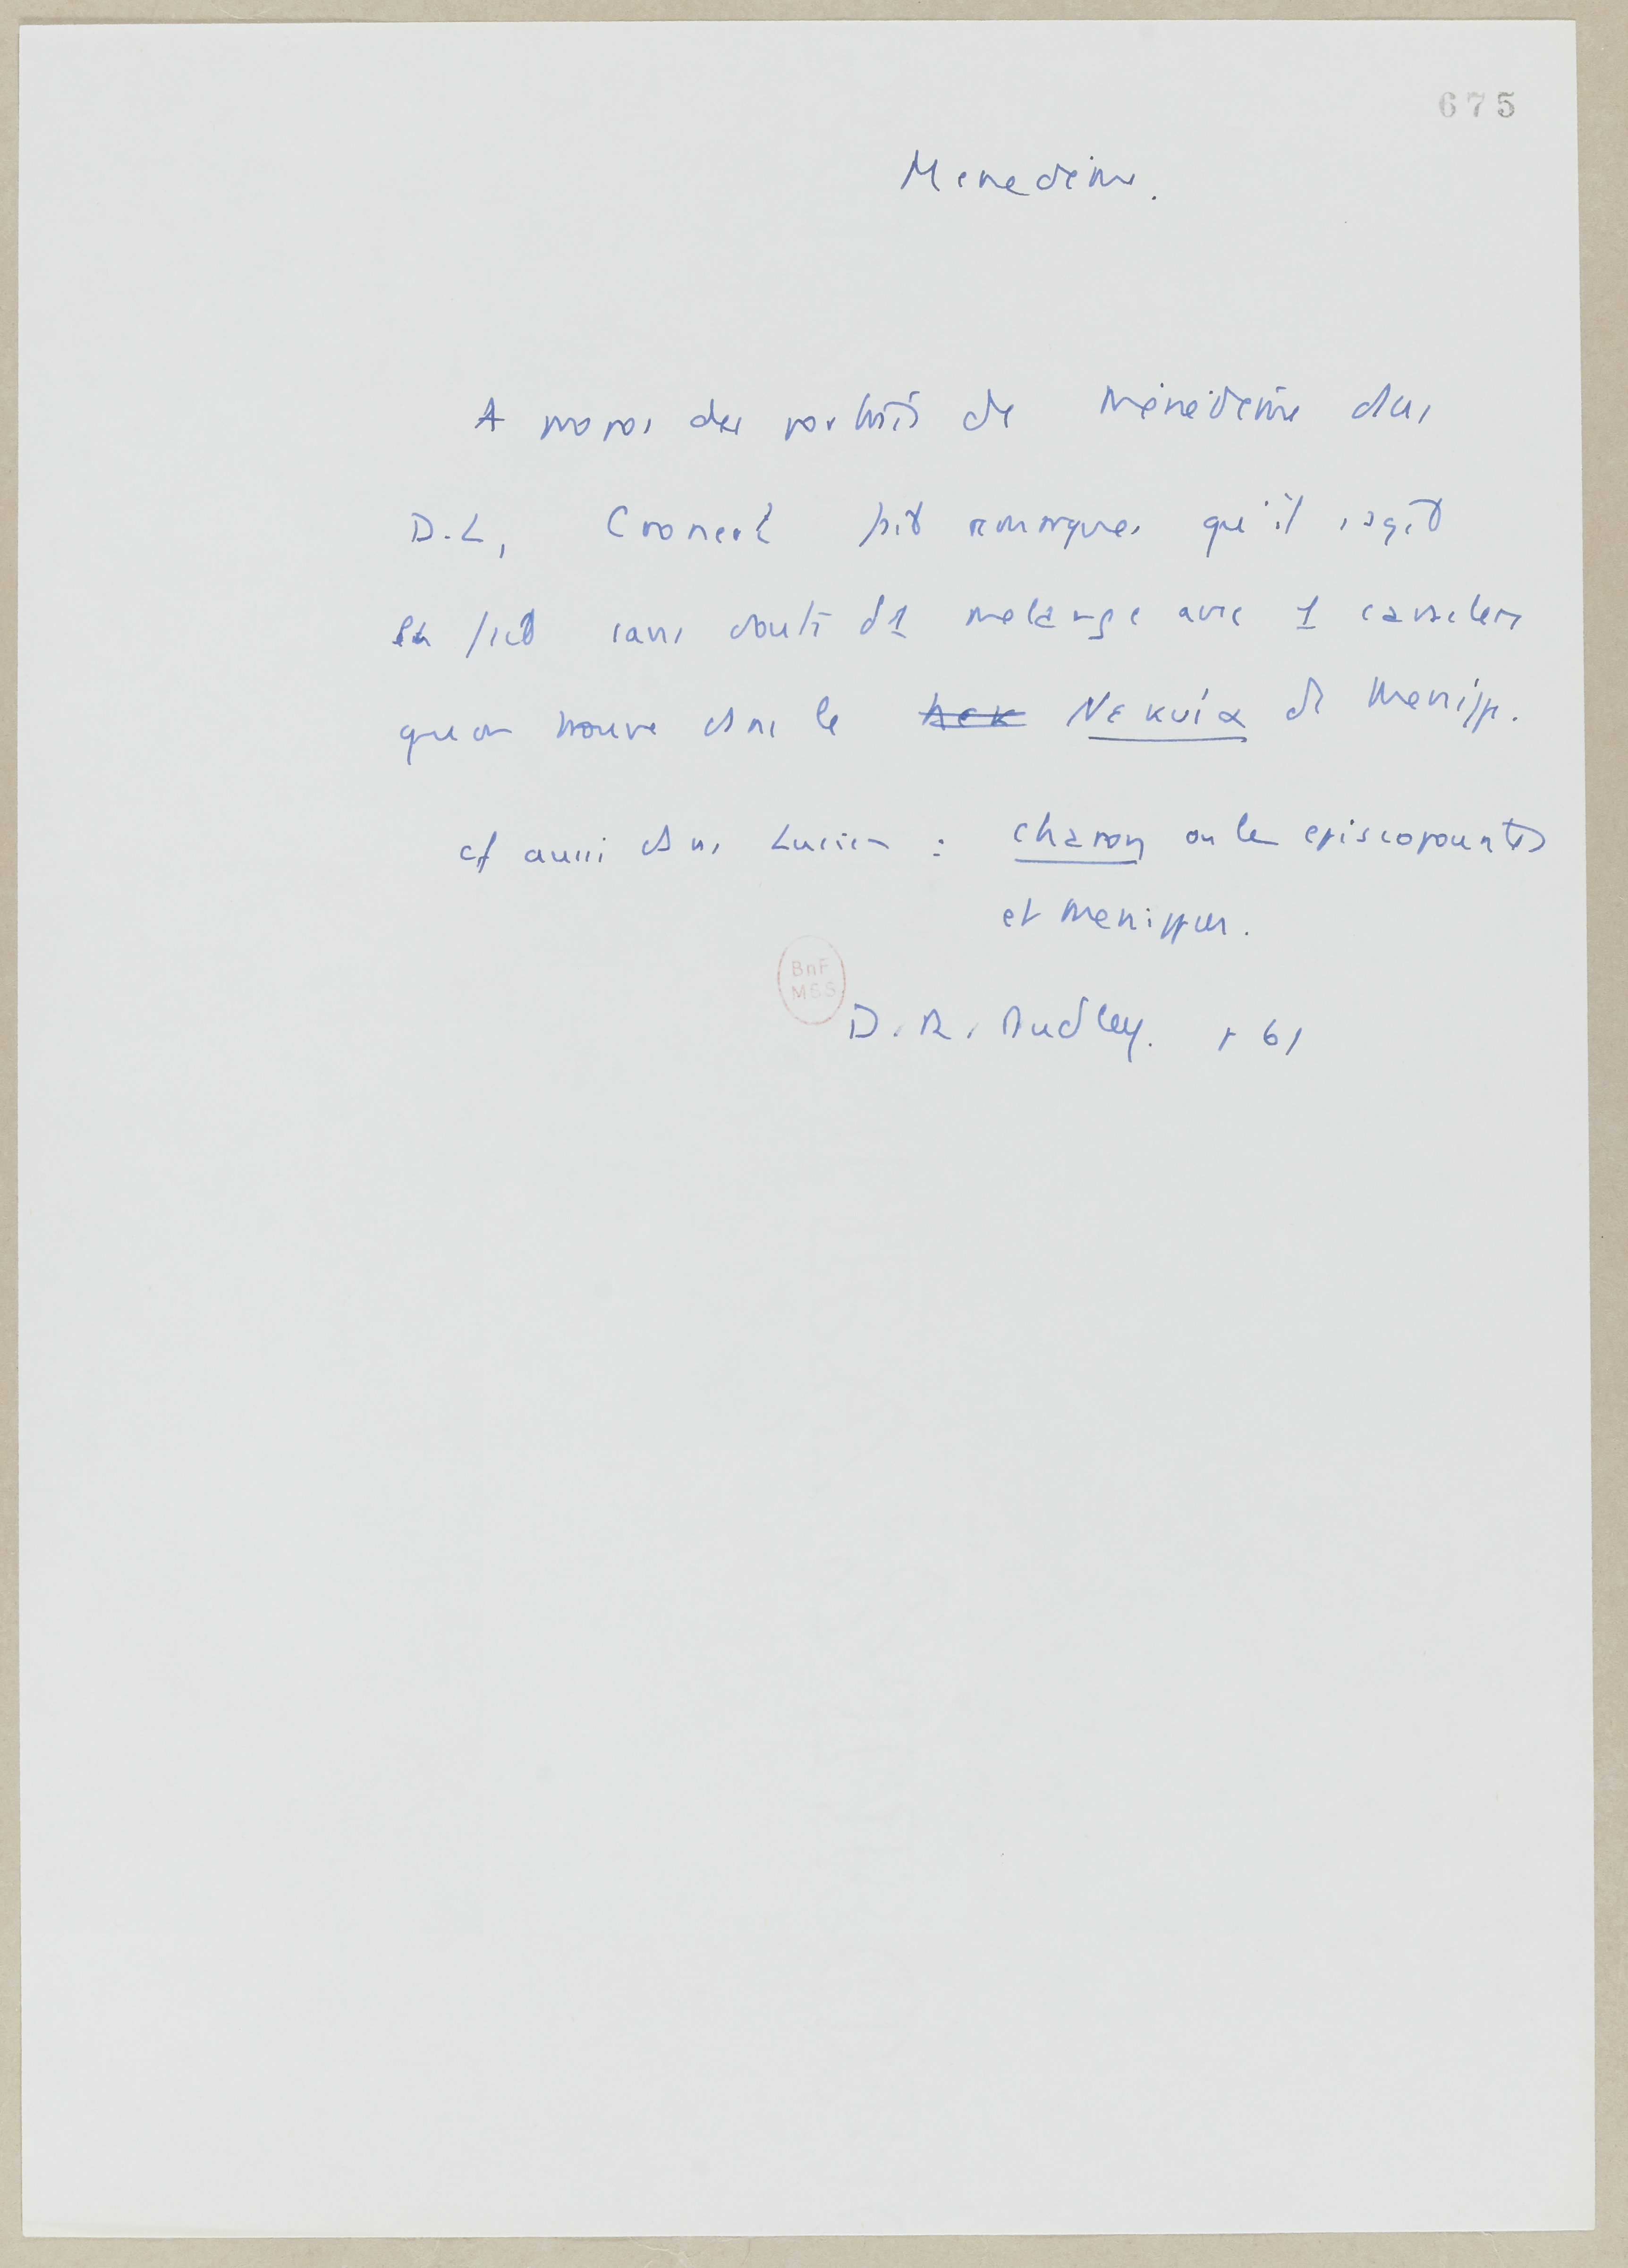 675
Menedème.
A propos des portraits de Ménédème dans
D.L, Cronert fait remarquer qu'il s'agit
en fait sans doute d'1 melange avec 1 caractère
qu'on trouve dans le Nek Νεκυία de Menippe.
cf aussi dans Lucien : Charon ou les episcopountes
et Menippus.
BnF
MSS
D. R. Dudley. p 61